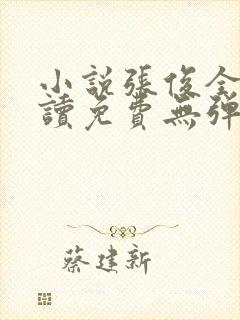 小説張俊全
讀免費無彈
蔡建新